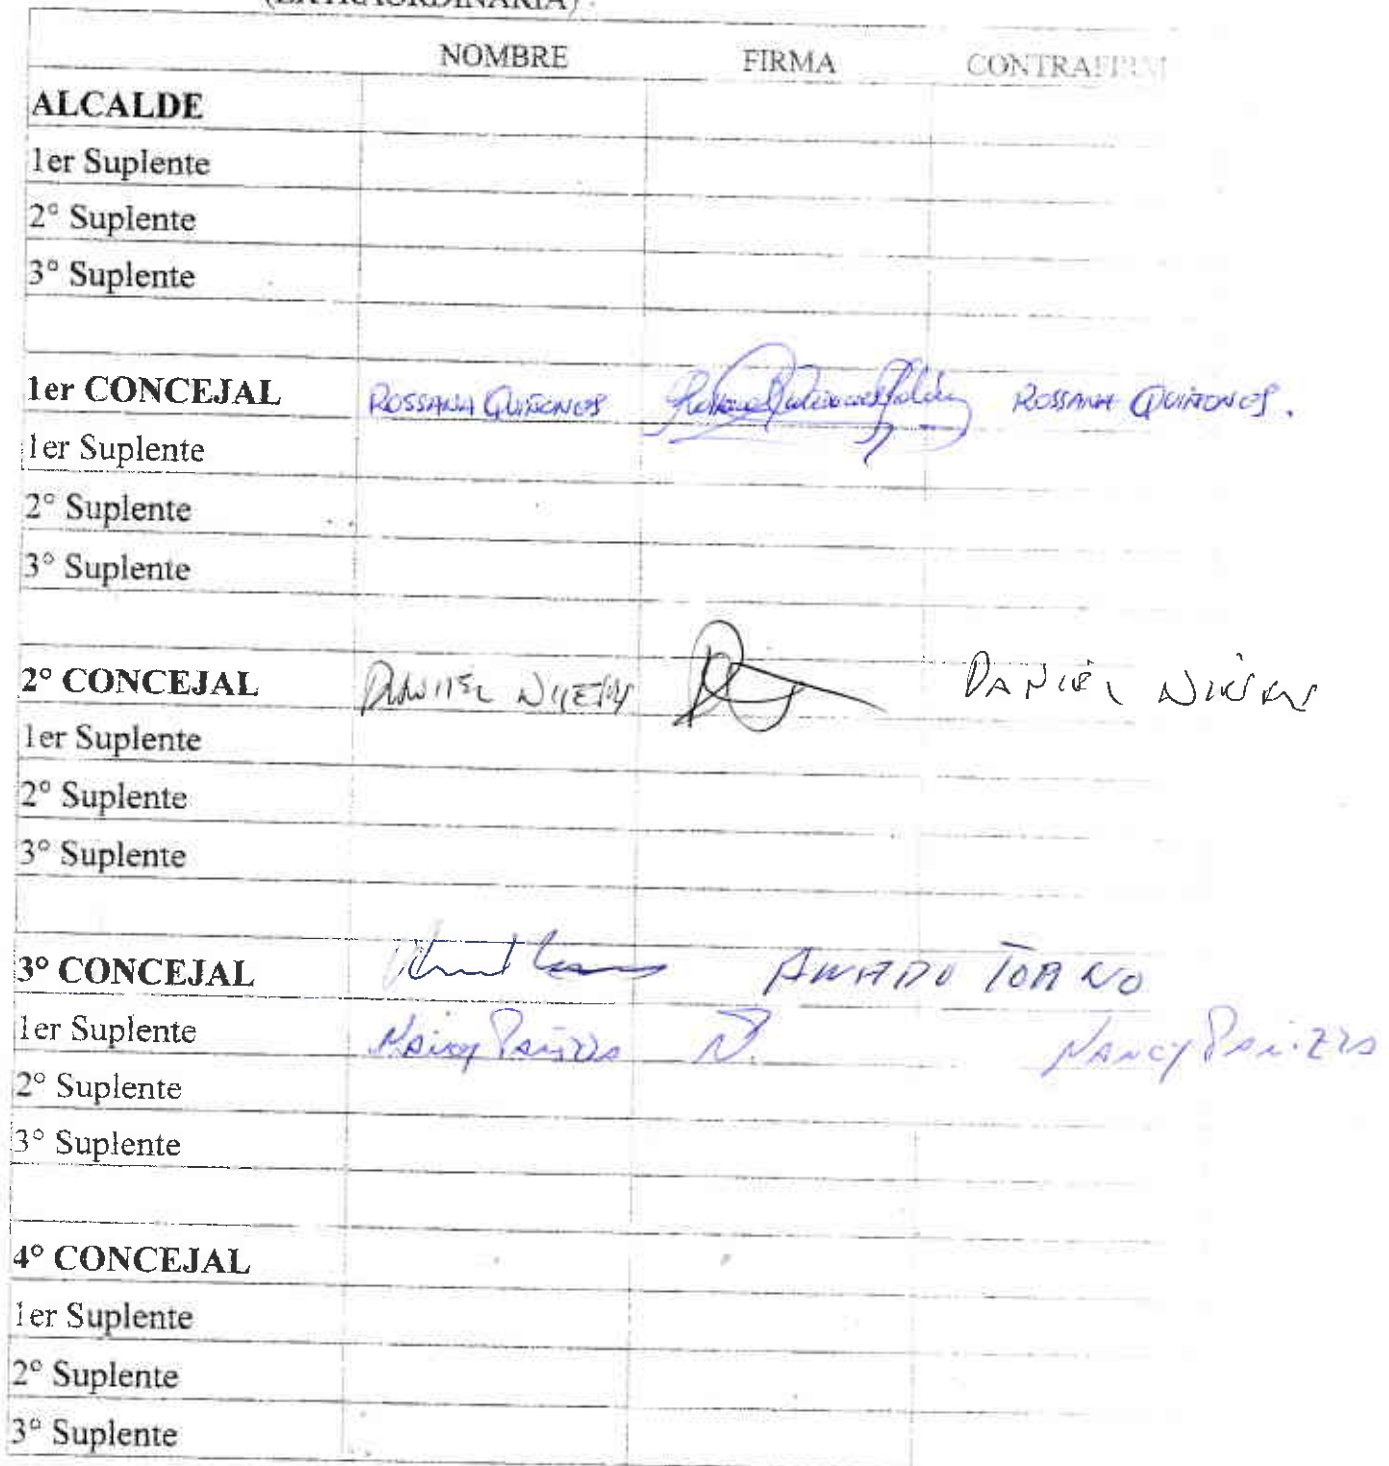 (EXTRAORDINARIA)
NOMBRE FIRMA
ALCALDE
1er Suplente
2° Suplente
3° Suplente
1er CONCEJAL ROSSANA QUIÑONES ROSSANA QUIÑONES.
1er Suplente
2° Suplente
3° Suplente
2° CONCEJAL DANIEL DANIEL
1er Suplente
2° Suplente
3° Suplente
3° CONCEJAL AMADO TORNO
1er Suplente Nancy N. NANCY
2° Suplente
3° Suplente
4° CONCEJAL
1er Suplente
2° Suplente
3° Suplente